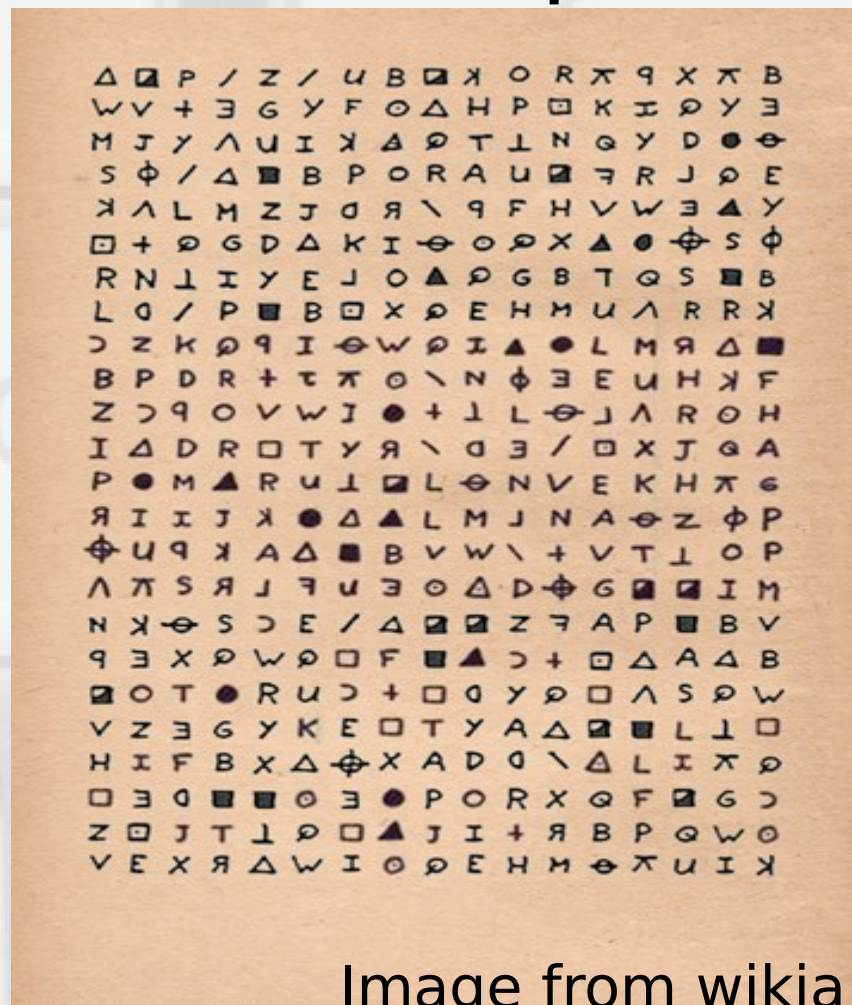 △ ◪ P / Z / U B ◪ ꓘ O R ⊼ 9 X ⊼ B
W V + Ǝ G Y F ⊙ △ H P ⊡ K I ϙ Y Ǝ
M J Y Λ U I ꓘ ◬ ϙ T ⊥ N Q Y D ● ⊖
S Φ / △ ■ B P O R A U ◪ ꟻ R J ϙ E
ꓘ Λ L M Z J ᗡ Я \ 9 F H V W Ǝ ▲ Y
⊡ + ϙ G D △ K I ⊖ ⊙ ϙ X ▲ ● ⌖ S Φ
R N ⊥ I Y E ⅃ O ▲ ϙ G B T Q S ■ B
L ᗡ / P ■ B ⊡ X ϙ E H M U Λ R R ꓘ
Ɔ Z K ϙ 9 I ⊖ W ϙ I ▲ ● L M Я △ ■
B P D R + τ ⊼ ⊙ \ N Φ Ǝ E U H ꓘ F
Z Ɔ 9 O V W I ● + ⊥ L ⊖ ⅃ Λ R ⊙ H
I △ D R □ T Y Я \ ᗡ Ǝ / ⊡ X J Q A
P ● M ▲ R U ⊥ ◪ L ⊖ N V E K H ⊼ G
Я I I J ꓘ ● △ ▲ L M J N A ⊖ Z Φ P
⌖ U 9 ꓘ A △ ■ B V W \ + V T ⊥ O P
Λ ⊼ S Я ⅃ ꟻ U Ǝ ⊙ ◬ D ⌖ G ◪ ◪ I M
N ꓘ ⊖ S Ɔ E / △ ◪ ◪ Z ꟻ A P ■ B V
9 Ǝ X ϙ W ϙ □ F ■ ▲ Ɔ + ⊡ △ A △ B
◪ O T ● R U Ɔ + □ ᗡ Y ϙ □ Λ S ϙ W
V Z Ǝ G Y K E □ T Y A △ ◪ ■ L ⊥ □
H I F B X △ ⌖ X A D ᗡ \ ◬ L I ⊼ ϙ
□ Ǝ ᗡ ■ ■ ⊙ Ǝ ● P O R X Q F ◪ G Ɔ
Z ⊡ J T ⊥ ϙ □ ▲ J I + Я B P Q W ⊙
V E X Я △ W I ⊙ ϙ E H M ⊖ ⊼ U I ꓘ
Image from wikia